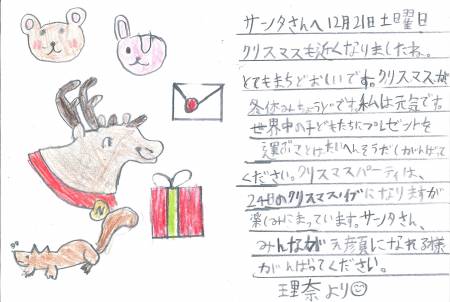 サンタさんへ12月21日土曜日
クリスマスも近くなりましたね。
とてもまちどおしいです。クリスマスが
冬休みちょうどです。私は元気です。
世界中の子どもたちにプレゼントを
運ぶことはたいへんそうだけどがんばって
ください。クリスマスパーティは、
24日のクリスマスイブになりますが
楽しみにまっています。サンタさん、
みんなが え顔になれる様
がんばってください。
理奈より
N